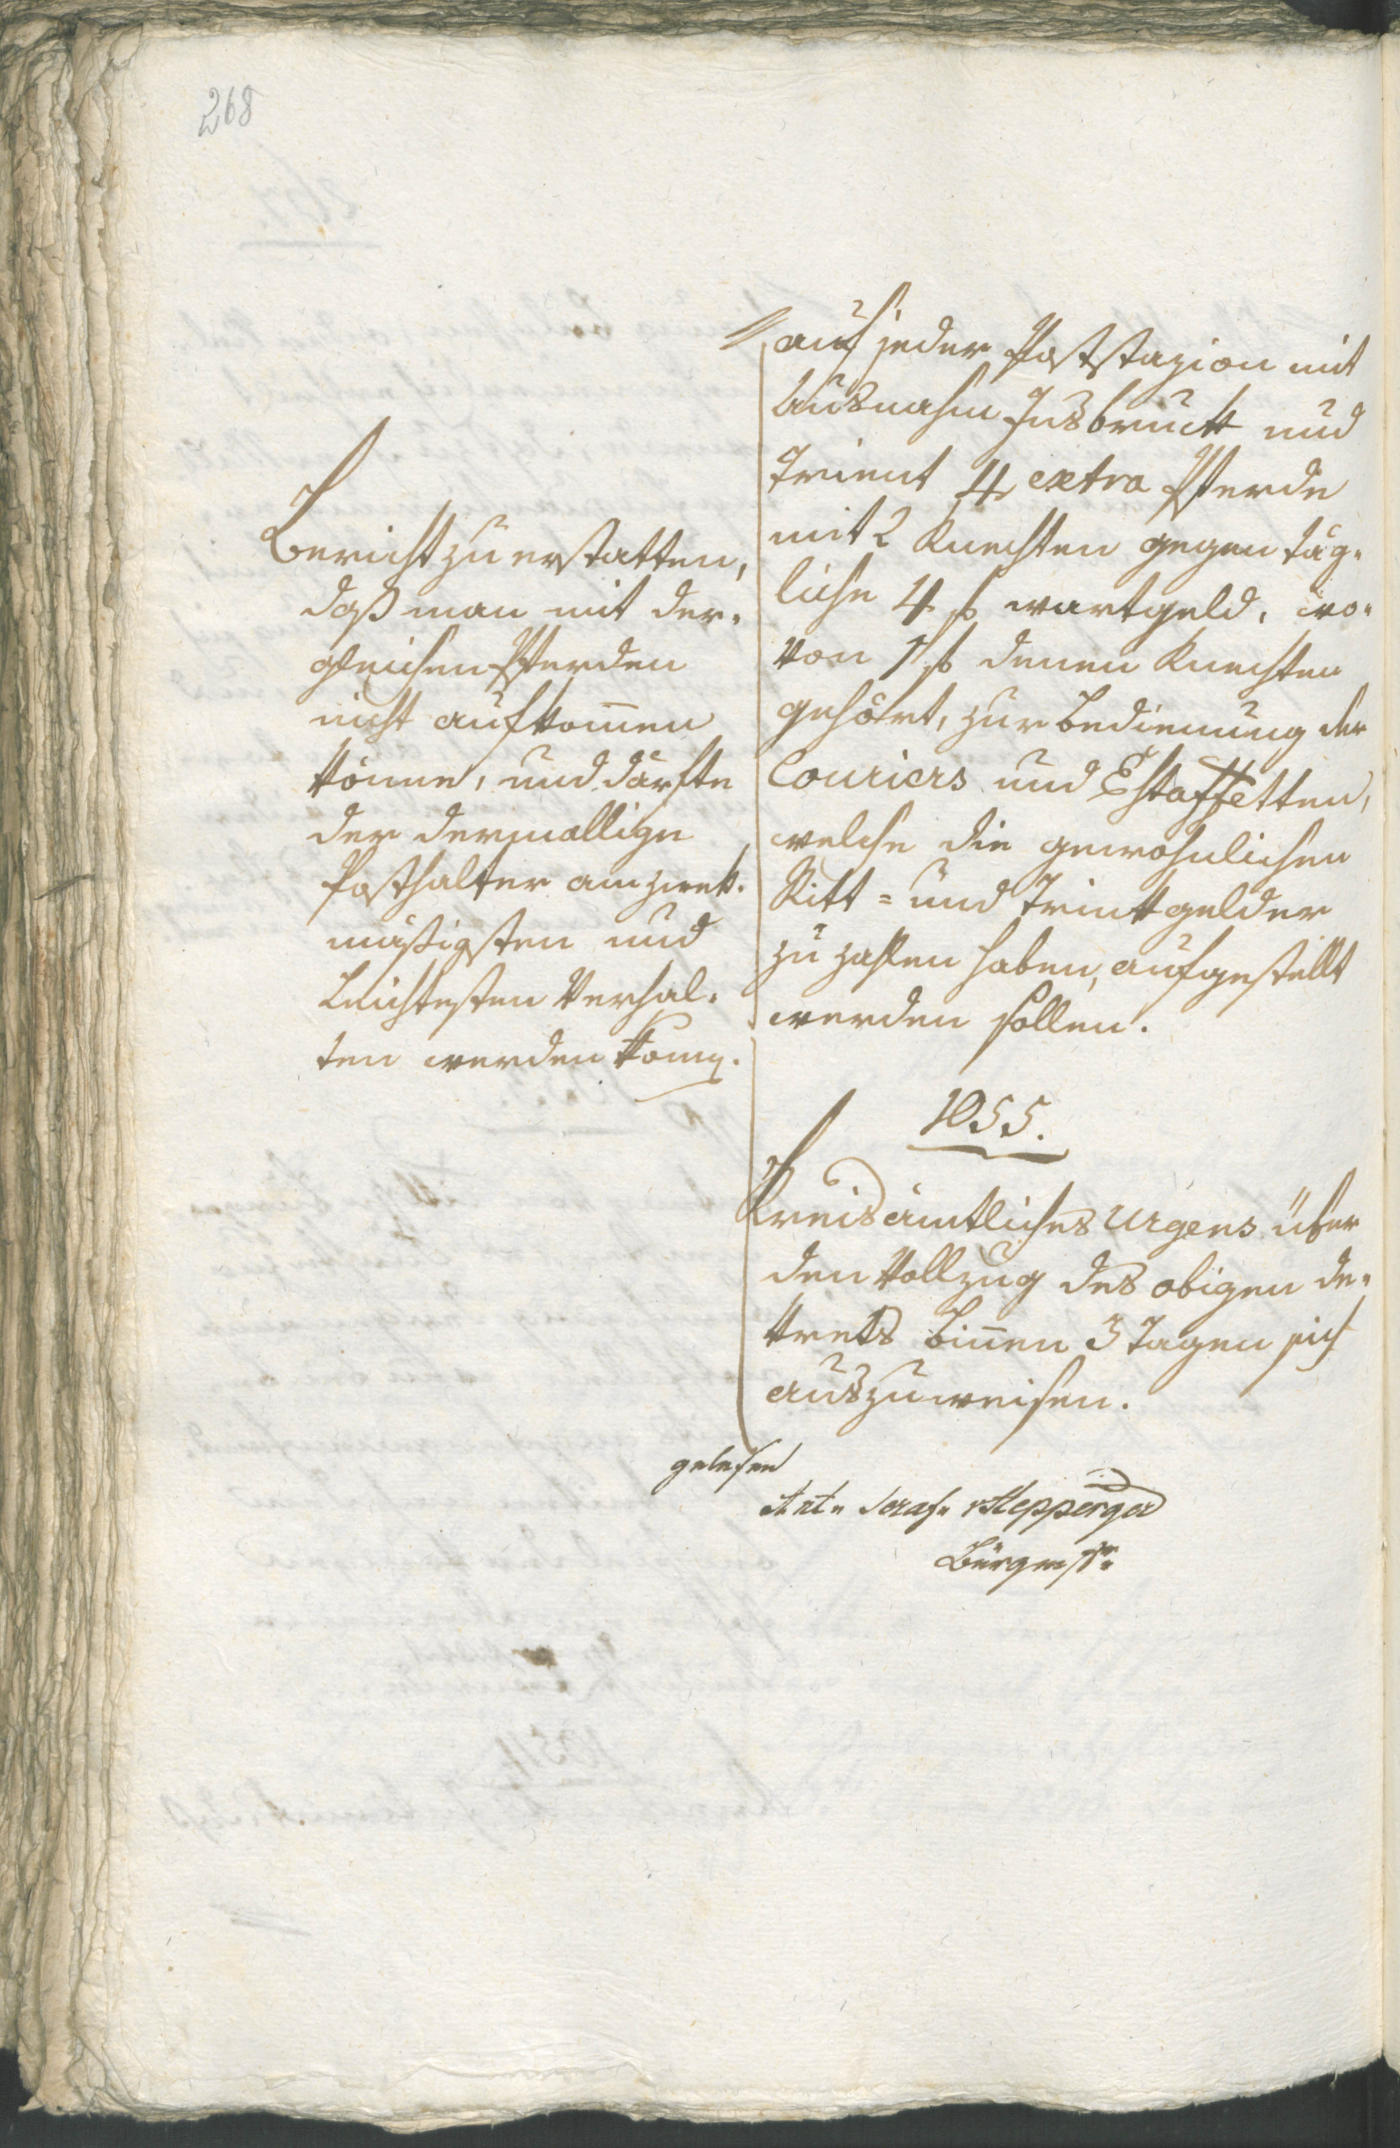 268
Bericht zu erstatten,
daß man mit der-
gleichen Pferden
nicht aufkom̄en
könne, und dürfte
der dermallige
Posthalter am zwek-
mäßigsten und
Leichtesten Verhal-
ten werden
auf jeder Poststazion mit
Ausnahm Insbruck und
Trient 4 extra Pferde
mit 2 Knechten gegen täg-
liche 4 f wartgeld, wo-
von 1 f denen Knechten
gehört, zur Bedienung der
Couriers und Estaffetten,
welche die gewohnlichen
Ritt- und Trinkgelder
zu zahlen haben, aufgestellt
werden sollen.
1055.
Kreisämtliches Urgens über
den Vollzug des obigen De-
krets bin̄en 3 Tagen sich
auszuweisen.
gelesen
Ant. Seraf. v Hepperger
Bürgmstr